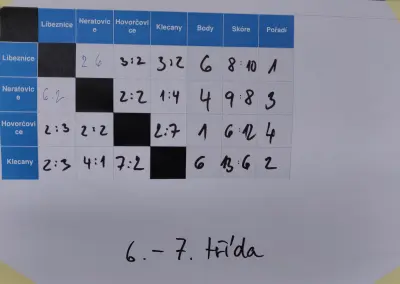 Líbeznice Neratovice Hovorčovice Klecany Body Skóre Pořadí
Líbeznice 2 6 3:2 3:2 6 8:10 1
Neratovice 6:2 2:2 1:4 4 9:8 3
Hovorčovice 2:3 2:2 2:7 1 6:12 4
Klecany 2:3 4:1 7:2 6 13:6 2
6. – 7. třída